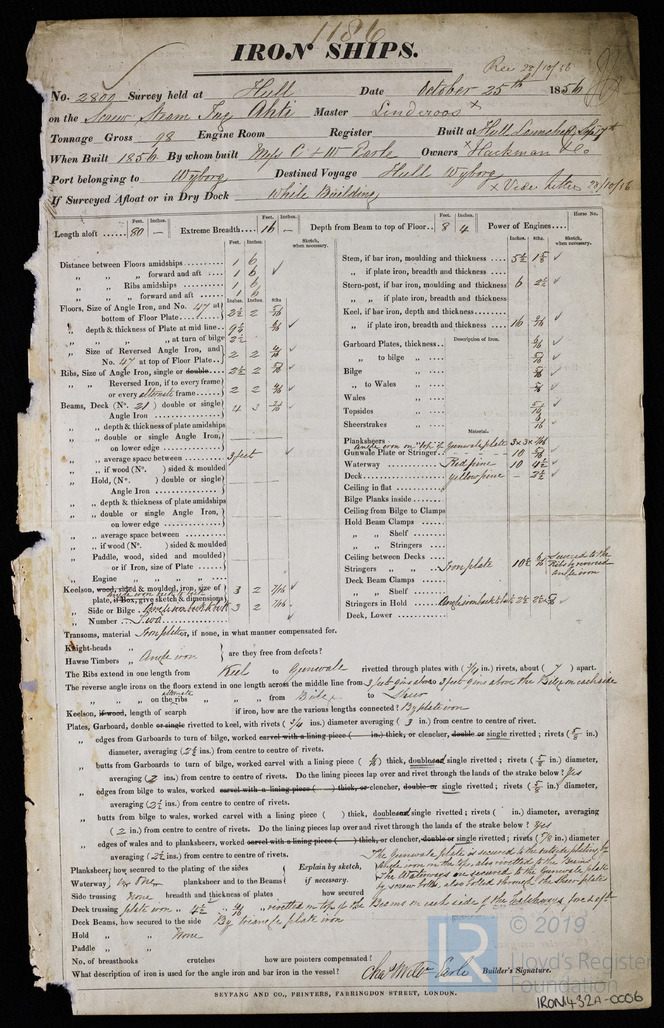 1186
IRON SHIPS.
Rec 28/10/56
No. 2809 Survey held at Hull Date October 25th 1856
on the Screw Steam Tug Ahti Master Linderoos x
Tonnage Gross 98 Engine Room Register Built at Hull Launched Sep 17th
When Built 1856 By whom built Messrs C & W Earle Owners x Hackman & Co
Port belonging to Wyborg Destined Voyage Hull Wyborg
If Surveyed Afloat or in Dry Dock While Building x Vide letter 28/10/56
Feet. Inches. Feet. Inches. Feet. Inches. Horse No.
Length aloft ...... 80 — Extreme Breadth .... 16 — Depth from Beam to top of Floor.. 8 4 Power of Engines....
Feet. Inches. Sketch, when necessary.
Distance between Floors amidships 1 6
„ „ „ forward and aft .... 1 6
„ „ Ribs amidships 1 6
„ „ „ forward and aft 1 6
Inches. Inches. 8ths
Floors, Size of Angle Iron, and No. 47 at bottom of Floor Plate 2½ 2
„ depth & thickness of Plate at mid line.. 9½
„ „ „ „ at turn of bilge 2½
„ Size of Reversed Angle Iron, and No. 47 at top of Floor Plate.. 2 2
Ribs, Size of Angle Iron, single or double 2½ 2
„ „ Reversed Iron, if to every frame or every alternate frame 2 2
Beams, Deck (No. 21) double or single Angle Iron 4 3
„ „ depth & thickness of plate amidships
„ „ double or single Angle Iron, on lower edge
„ „ average space between 3 feet
„ „ if wood (No. ) sided & moulded
„ Hold, (No. ) double or single Angle Iron
„ „ depth & thickness of plate amidships
„ „ double or single Angle Iron, on lower edge
„ „ average space between
„ „ if wood (No. ) sided & moulded
„ Paddle, wood, sided and moulded or if Iron, size of Plate
„ Engine „ „ „ „
Keelson, wood, sided & moulded, iron, size of plate, if Box, give sketch & dimensions angle iron back to back 3 2 7/16
„ Side or Bilge Angle iron back to back 3 2 7/16
„ Number Two
Inches. 8ths. Sketch, when necessary.
Stem, if bar iron, moulding and thickness 5½ 1⅝
„ if plate iron, breadth and thickness
Stern-post, if bar iron, moulding and thickness 6 2½
„ „ if plate iron, breadth and thickness
Keel, if bar iron, depth and thickness
„ if plate iron, breadth and thickness 16
Description of Iron.
Garboard Plates, thickness
„ to bilge „
Bilge „
„ to Wales „
Wales „
Topsides „
Sheerstrakes „
Material.
Planksheers Angle iron on top of Gunwale plate 3 x 3 x 7/16
Gunwale Plate or Stringer 10
Waterway Red pine 10 4½
Deck yellow pine — 2½
Ceiling in flat
Bilge Planks inside
Ceiling from Bilge to Clamps
Hold Beam Clamps
„ „ Shelf
„ „ Stringers
Ceiling between Decks
Stringers „ „ Iron plate 10½ secured to the Ribs by reversed angle iron
Deck Beam Clamps
„ „ Shelf
Stringers in Hold Angle iron back to back 2½ 2½
Deck, Lower
Transoms, material Iron plates, if none, in what manner compensated for.
Knight-heads „
Hawse Timbers „ Angle iron are they free from defects?
The Ribs extend in one length from Keel to Gunwale rivetted through plates with (3/4 in.) rivets, about (7) apart.
The reverse angle irons on the floors extend in one length across the middle line from 3 feet 9 ins above to 3 feet 9 ins above the Bilge on each side
„ „ „ „ on the alternate ribs „ „ „ from Bilge to Sheer
Keelson, if wood, length of scarph if iron, how are the various lengths connected? By plate iron
Plates, Garboard, double or single rivetted to keel, with rivets (3/4 ins.) diameter averaging (3 in.) from centre to centre of rivet.
„ edges from Garboards to turn of bilge, worked carvel with a lining piece ( in.) thick, or clencher, double or single rivetted; rivets (5/8 in.)
diameter, averaging (2½ ins.) from centre to centre of rivets.
„ butts from Garboards to turn of bilge, worked carvel with a lining piece ( ) thick, double and single rivetted; rivets (5/8 in.) diameter,
averaging (2 ins.) from centre to centre of rivets. Do the lining pieces lap over and rivet through the lands of the strake below? Yes
„ edges from bilge to wales, worked carvel with a lining piece ( ) thick, or clencher, double or single rivetted; rivets (5/8 in.) diameter,
averaging (2½ ins.) from centre to centre of rivets.
„ butts from bilge to wales, worked carvel with a lining piece ( ) thick, double and single rivetted; rivets ( ins.) diameter, averaging
(2 in.) from centre to centre of rivets. Do the lining pieces lap over and rivet through the lands of the strake below? yes
„ edges of wales and planksheers, worked carvel with a lining piece ( in.) thick, or clencher, double or single rivetted; rivets ( in.) diameter
averaging (2½ ins.) from centre to centre of rivets.
Planksheer, how secured to the plating of the sides Explain by sketch, if necessary. The Gunwale plate is secured to the outside plating by Angle iron on the top, also rivetted to the Beams
Waterway, planksheer and to the Beams The Waterways are secured to the Gunwale plate by screw bolts, also bolted through the sheer plate
Side trussing None breadth and thickness of plates how secured
Deck trussing plate iron „ 4½ „ rivetted on top of the Beams on each side of the hatchways fore & aft
Deck Beams, how secured to the side By triangle plate iron
Hold „ „ None
Paddle „ „
No. of breasthooks crutches how are pointers compensated?
What description of iron is used for the angle iron and bar iron in the vessel? Chas & Willm Earle Builder's Signature.
SEYFANG AND CO., PRINTERS, FARRINGDON STREET, LONDON.
LR
© 2019
Lloyd's Register
Foundation
IRON432A-0006